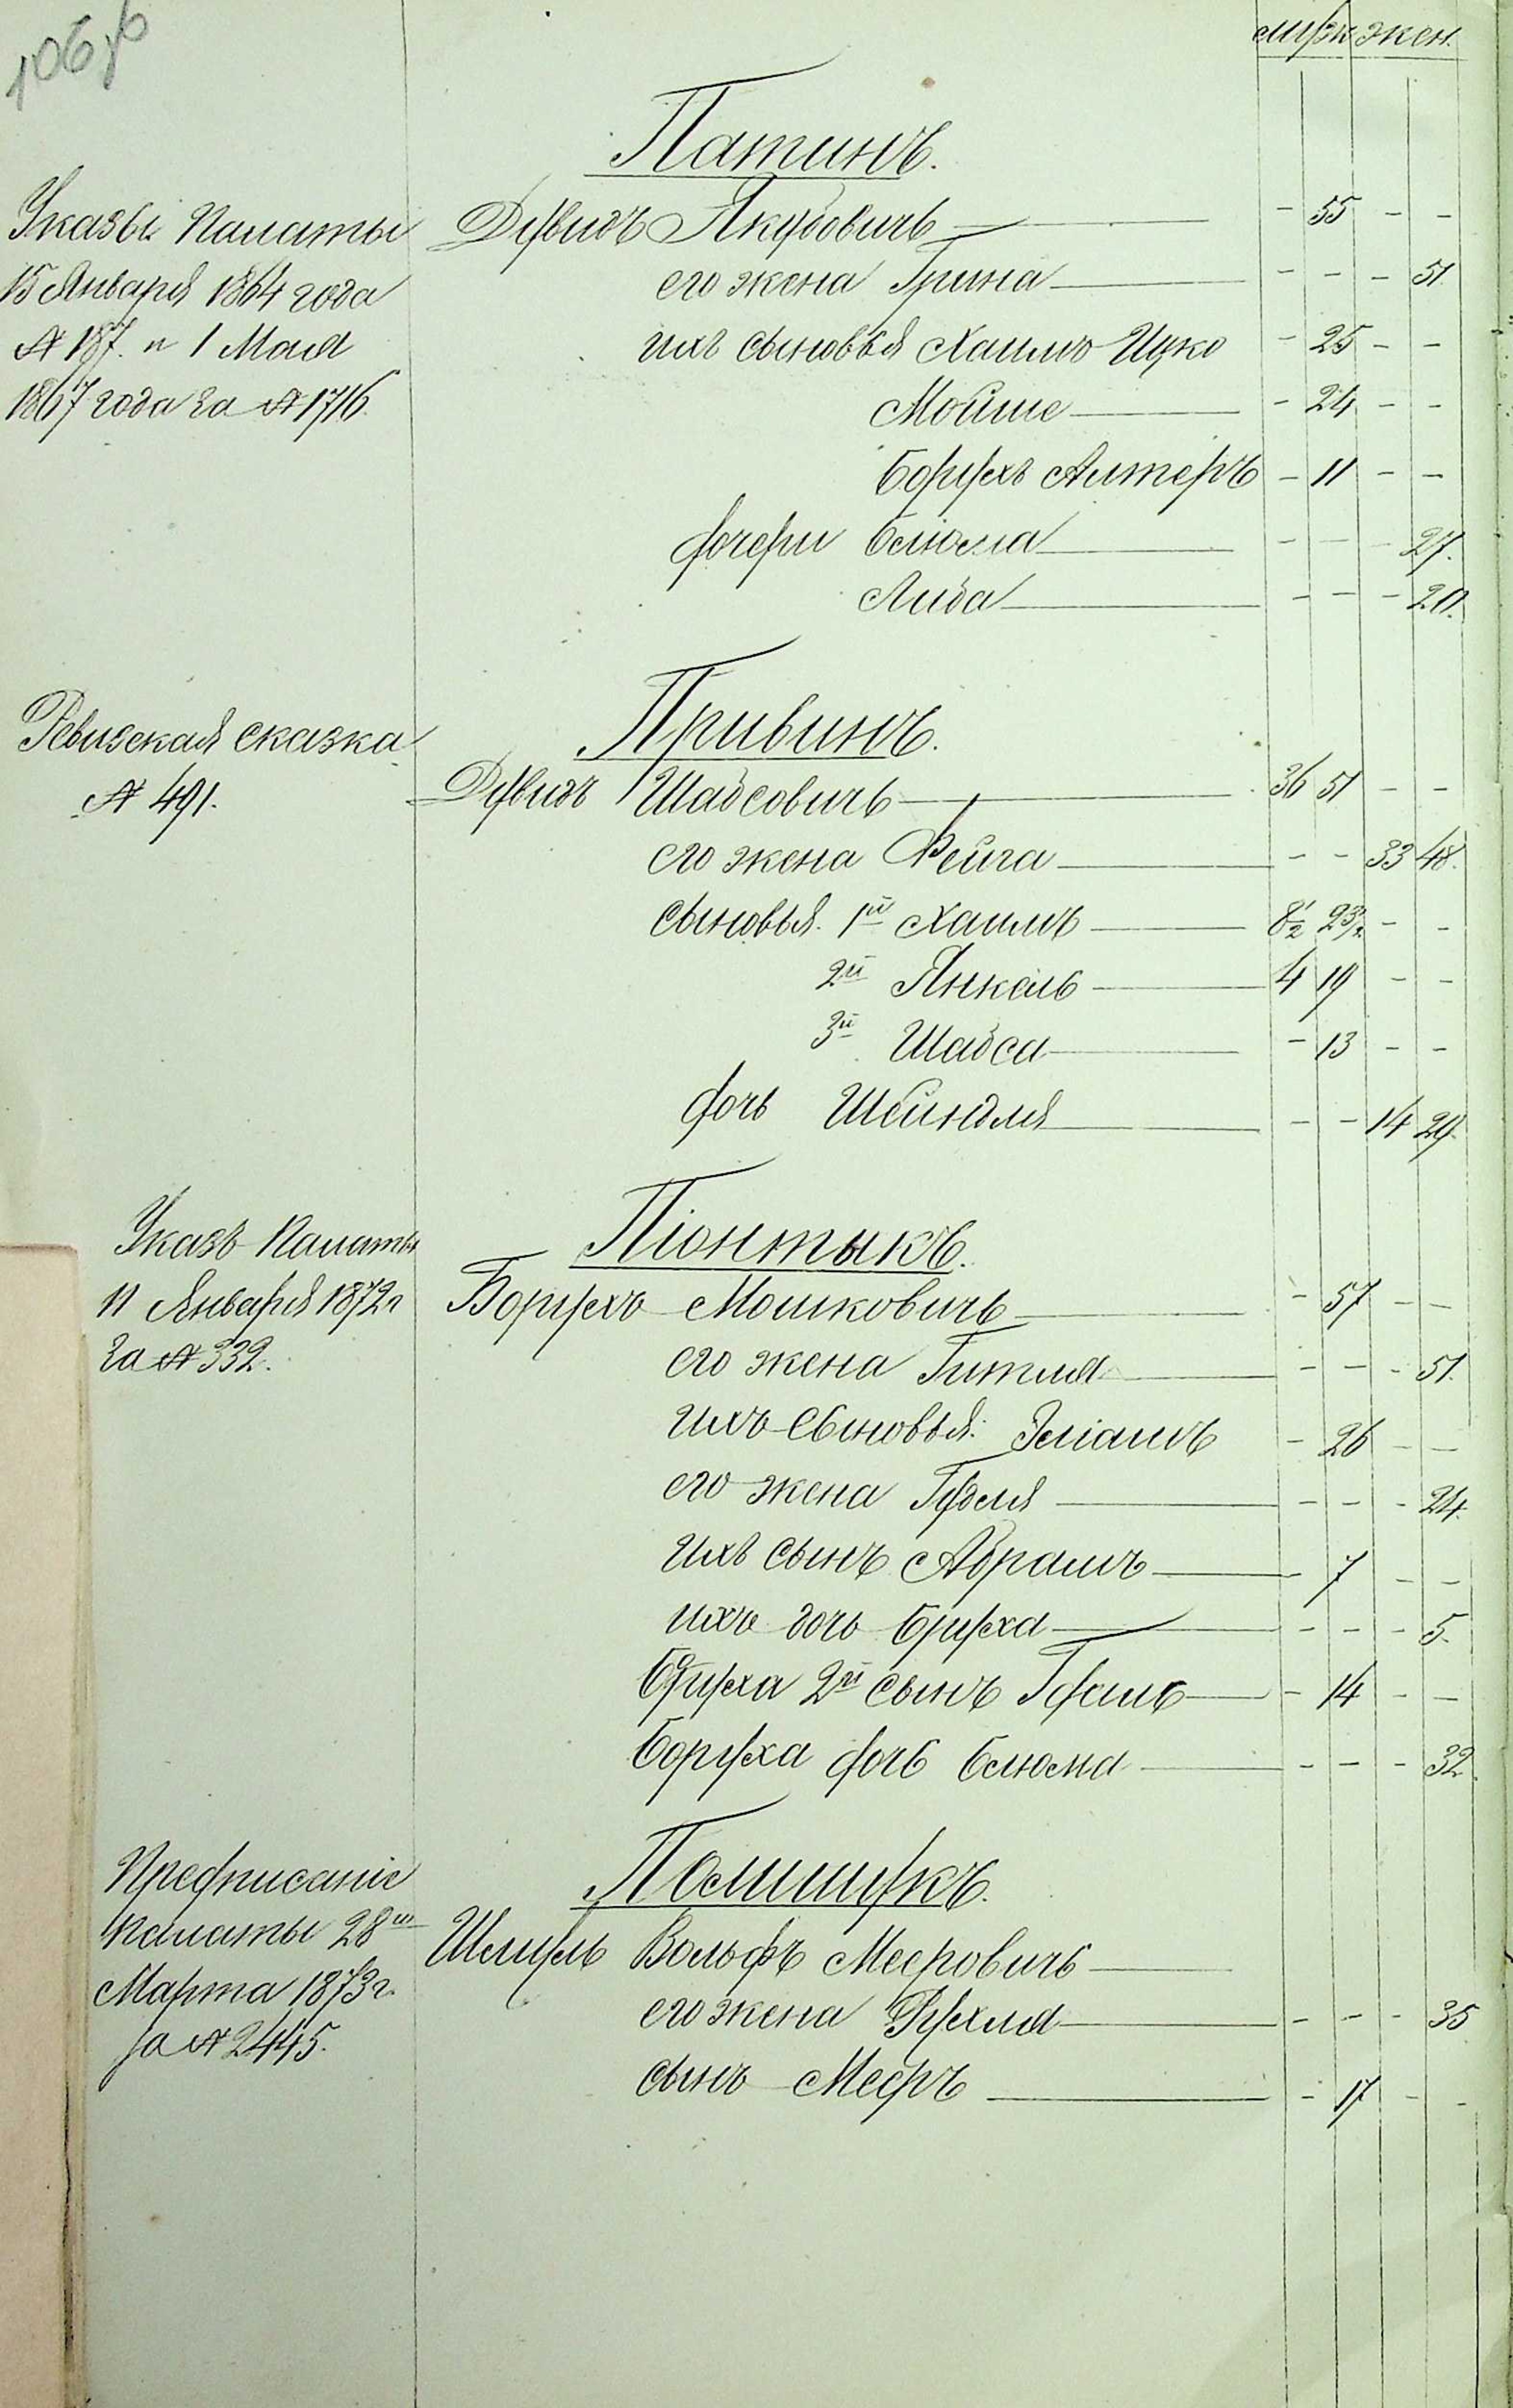 106об
муж жен.
Патинъ.
Указы Палаты
15 Января 1864 года
№ 187. и 1 Мая
1867 года за № 1716.
Дувидъ Якубовичъ — - 55 - -
его жена Грина — - - - 51.
ихъ сыновья Хаимъ Ицко - 25 - -
Мойше — - 24 - -
Борухъ Алтеръ - 11 - -
дочери Блюма — - - - 27.
Либа — - - - 20.
Ревизская сказка
№ 491.
Привинъ.
Дувидъ Шабсовичъ — 36 51 - -
его жена Фейга — - - 33 48.
сыновья. 1й Хаимъ — 8½ 23½ - -
2й Янкель — 4 19 - -
3й Шабса — - 13 - -
дочь Шейндля — - - 14 29.
Указъ Палаты
11 Января 1872 г
за № 332.
Піонтыкъ.
Борухъ Мошковичъ — - 57 - -
его жена Гитля — - - - 51.
ихъ сыновья: Зеліамъ - 26 - -
его жена Гудея — - - - 24.
ихъ сынъ Абрамъ — - 7 - -
ихъ дочь Бруха — - - - 5.
Боруха 2й сынъ — - 14 - -
Боруха дочь Блюма — - - - 32.
Предписаніе
Палаты 28го
Марта 1873 г.
за № 2445.
Полищукъ.
Шмуль Вольфъ Мееровичъ —
его жена Рухля — - - - 35
сынъ Мееръ — - 17 - -